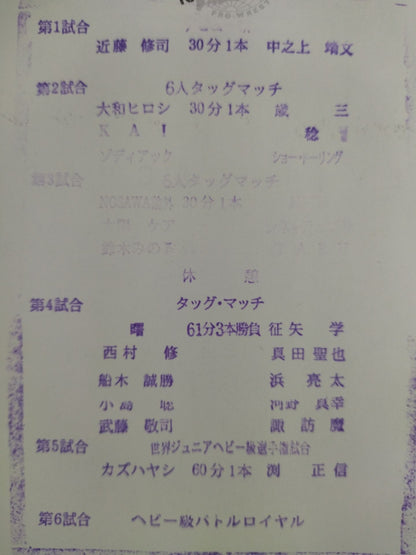 PRO-WREST
第1試合
近藤 修司 30分1本 中之上 靖文
第2試合 6人タッグマッチ
大和ヒロシ 30分1本 歳 三
KAI 稔
ゾディアック ショー・ドーリング
第3試合 6人タッグマッチ
NOSAWA 30分1本
ケア
鈴木みのる
休 憩
第4試合 タッグ・マッチ
曙 61分3本勝負 征矢 学
西村 修 真田聖也
船木 誠勝 浜 亮太
小島 聡 河野 真幸
武藤 敬司 諏訪魔
第5試合 世界ジュニアヘビー級選手権試合
カズハヤシ 60分1本 渕 正信
第6試合 ヘビー級バトルロイヤル